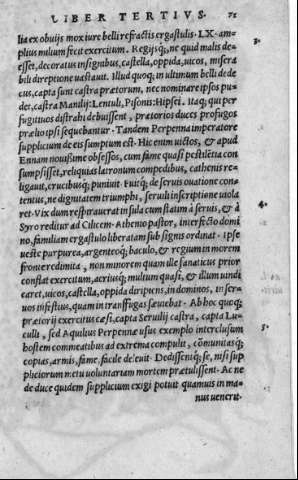 LIBER TERTIVS. 71
lia ex obuijs mox iure belli refractis ergastulis · LX · am-
plius milium fecit exercitum. Regijsq;, ne quid malis de-
esset, decoratus insignibus, castella, oppida, uicos, misera
bili direptione uastauit. Illud quoq; in ultimum belli dede
cus, capta sunt castra prætorum, nec nominare ipsos pu-
det, castra Manilij: Lentuli, Pisonis: Hipsei. Itaq; qui per
fugitiuos distrahi debuissent, prætorios duces profugos
prælio ipsi sequebantur · Tandem Perpenna imperatore
supplicium de eis sumptum est · Hic enim uictos, & apud
Ennam nouissime obsessos, cum fame quasi pestilētia con
sumpsisset, reliquias latronum compedibus, cathenis re-
ligauit, crucibusq; puniuit · Fuitq; de seruis ouatione con-
tentus, ne dignitatem triumphi, seruili inscriptione uiola
ret · Vix dum respirauerat insula cum statim à seruis, & à
Syro reditur ad Cilicem · Athenio pastor, interfecto domi
no, familiam ergastulo liberatam sub signis ordinat · Ipse
ueste purpurea, argenteoq; baculo, & regium in morem
fronte redimita, non minorem quam ille fanaticus prior
conflat exercitum, acriusq; multo quasi, & illum uindi
caret, uicos, castella, oppida diripiens, in dominos, in ser-
uos infestius, quam in transfugas sæuiebat · Ab hoc quoq;
prætorij exercitus cæsi, capta Seruilij castra, capta Lu-
culli, sed Aquilius Perpennæ usus exemplo interclusum
hostem commeatibus ad extrema compulit, cōmunitasq;
copias, armis, fame, facile deleuit · Dedissentq; se, nisi sup
pliciorum metu uoluntariam mortem prætulissent · Ac ne
de duce quidem supplicium exigi potuit quamuis in ma-
nus uenerit ·
3·
4·
5·